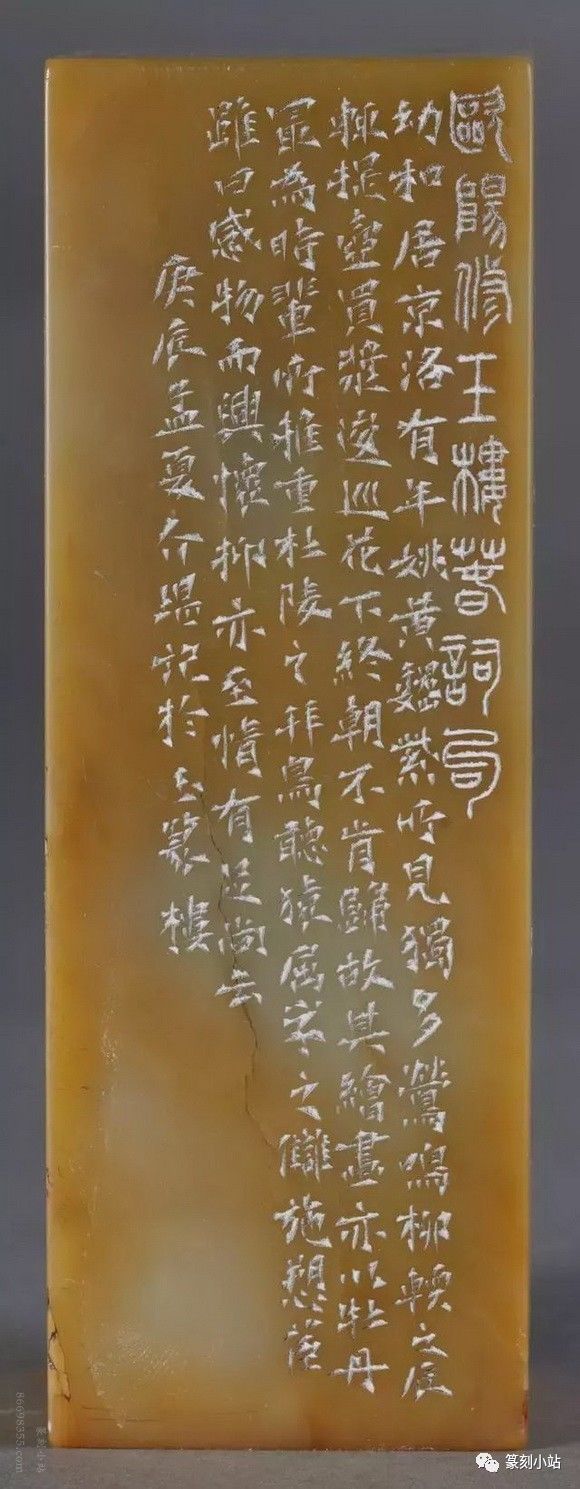 歐陽修玉樓春詞句
幼和居京洛有年姚黃魏紫所見獨多鶯鳴柳輭之辰
輒提壺買漿逡巡花下終朝不肯歸故其繪畫亦以牡丹
冣為時輩所推重杜陵之拜鳥聽猿屈宋之儷施塑荃
雖曰感物而興懷抑亦至情有足尚云
庚辰孟夏介堪記於玉篆樓
篆刻小站
篆刻小站
86698355.com